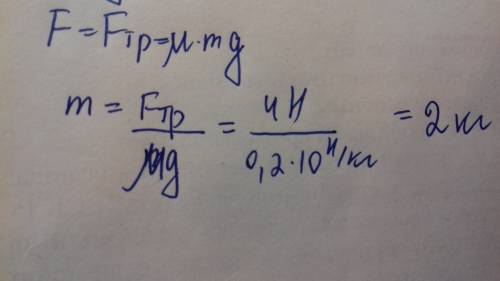 F = Fтр = μ·mg
m = Fтр/μg = 4Н/0,2·10Н/кг = 2кг